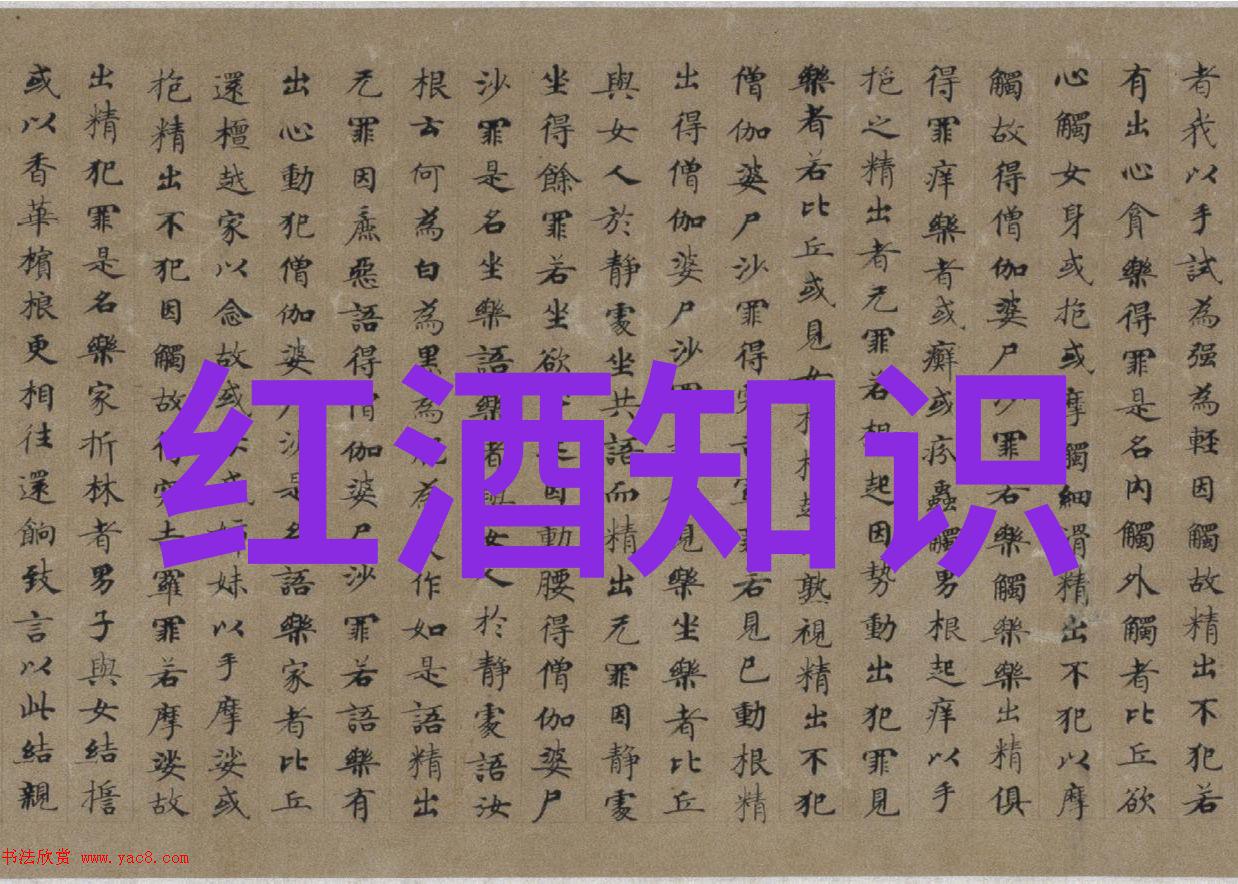 者我以手試為强為輕因觸故精出不犯若
有出心貪樂得罪是名内觸外觸者比丘欲
心觸女身或抱或摩觸細滑精出不犯以摩
觸故得僧伽婆尸沙罪若樂觸樂樂出精俱
得罪痒樂者或癬或疥蟲觸男根起痒以手
抱之精出者无罪若相起因勢動出犯罪見
樂者若比丘或見女熟視精出不犯
僧伽婆尸沙罪得若見已動根精
出得僧伽婆尸沙見樂坐樂者比丘
與女人於静處坐共語而精出无罪因静處
坐得餘罪若坐欲因動腰得僧伽婆尸
沙罪是名坐樂語樂者女人於静處語汝
根云何為白為黑為作如是語精出
无罪因麁惡語得僧伽婆尸沙罪若語樂有
出心動犯僧伽婆尸沙是名語樂家者比丘
還檀越家以念故或妹以手摩娑或
抱精出不犯因觸故得罪若摩娑故
出精犯罪是名樂家折林者男子與女結誓
或以香華檳榔更相往還餉致言以此結親
红酒知识
书法欣赏 www.yac8.com